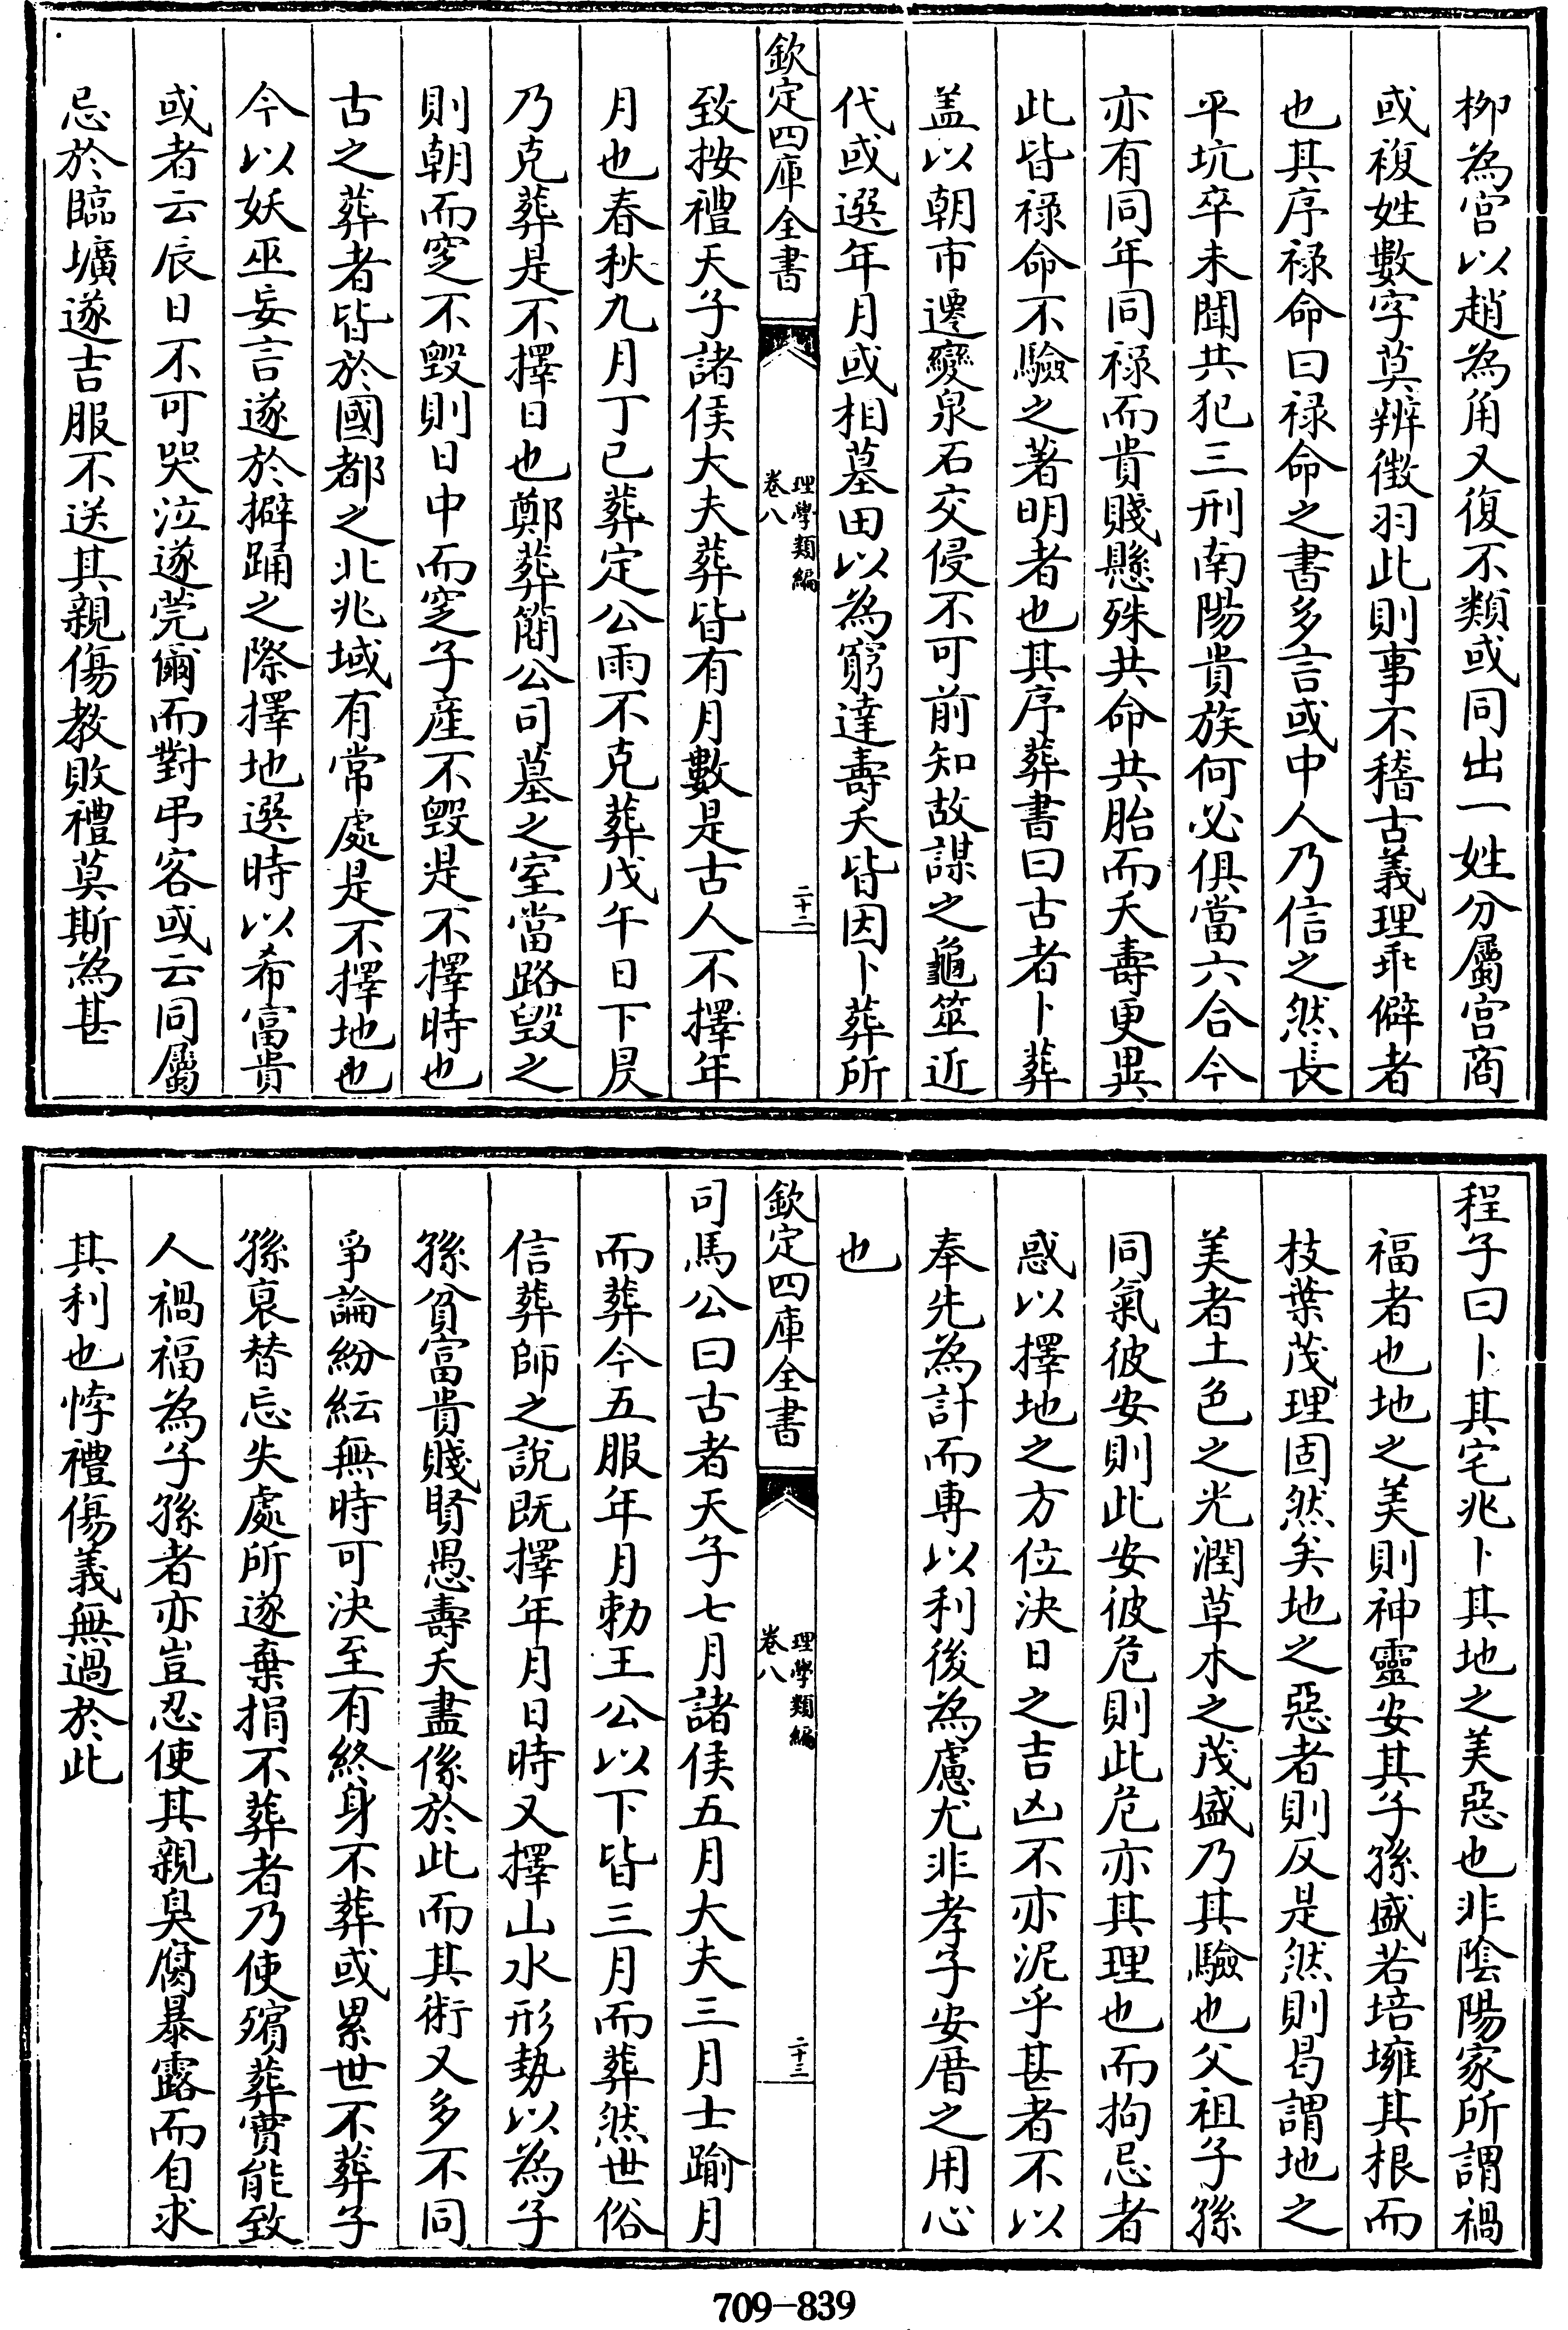 柳為宫以趙為角又復不類或同出一姓分屬宫商
或複姓數字莫辨徵羽此則事不稽古義理乖僻者
也其序禄命曰禄命之書多言或中人乃信之然長
平坑卒未聞共犯三刑南陽貴族何必俱當六合今
亦有同年同禄而貴賤懸殊共命共胎而夭壽更異
此皆禄命不驗之著明者也其序葬書曰古者卜葬
盖以朝市遷變泉石交侵不可前知故謀之龜筮近
代或選年月或相墓田以為窮達壽夭皆因卜葬所
欽定四庫全書
理學類編
卷八
二十二
致按禮天子諸侯大夫葬皆有月數是古人不擇年
月也春秋九月丁巳葬定公雨不克葬戊午日下昃
乃克葬是不擇日也鄭葬簡公司墓之室當路毁之
則朝而窆不毁則日中而窆子産不毁是不擇時也
古之葬者皆於國都之北兆域有常處是不擇地也
今以妖巫妄言遂於擗踊之際擇地選時以希富貴
或者云辰日不可哭泣遂莞爾而對弔客或云同屬
忌於臨壙遂吉服不送其親傷教敗禮莫斯為甚
程子曰卜其宅兆卜其地之美惡也非陰陽家所謂禍
福者也地之美則神靈安其子孫盛若培壅其根而
枝葉茂理固然矣地之惡者則反是然則曷謂地之
美者土色之光潤草木之茂盛乃其驗也父祖子孫
同氣彼安則此安彼危則此危亦其理也而拘忌者
惑以擇地之方位決日之吉凶不亦泥乎甚者不以
奉先為計而專以利後為慮尤非孝子安厝之用心
也
欽定四庫全書
理學類編
卷八
二十三
司馬公曰古者天子七月諸侯五月大夫三月士踰月
而葬今五服年月勅王公以下皆三月而葬然世俗
信葬師之說既擇年月日時又擇山水形勢以為子
孫貧富貴賤賢愚壽夭盡係於此而其術又多不同
爭論紛紜無時可決至有終身不葬或累世不葬子
孫衰替忘失處所遂棄捐不葬者乃使殯葬實能致
人禍福為子孫者亦豈忍使其親臭腐暴露而自求
其利也悖禮傷義無過於此
709-839